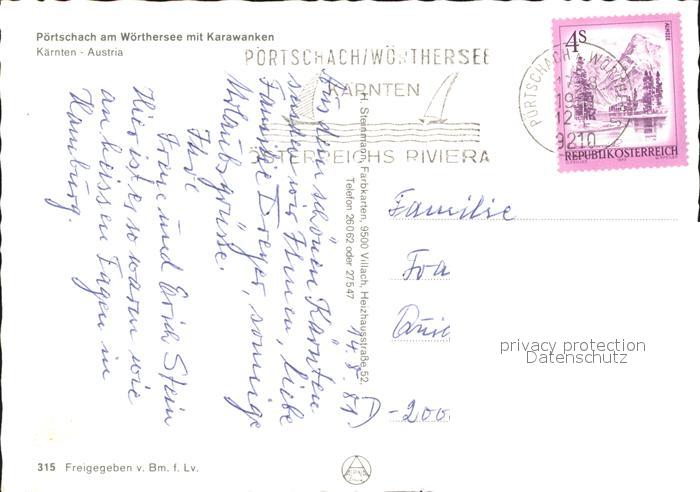 Pörtschach am Wörthersee mit Karawanken
Kärnten - Austria
PÖRTSCHACH/WÖRTHERSEE
KÄRNTEN
ÖSTERREICHS RIVIERA
PÖRTSCHACH WÖRTHERSEE
12
9210
4s
ALMSEE
REPUBLIK ÖSTERREICH
H. Steinmann, Farbkarten, 9500 Villach, Heizhausstraße 52,
Telefon 26062 oder 27547
14.8.81
Aus dem schönen Kärnten
senden wir Ihnen, liebe
Familie Dreyer, sonnige
Urlaubsgrüsse.
Ihre
Irene und Erich Stein
Hier ist es so warm wie
an heissen Tagen in
Hamburg.
Familie
Fra
D-200
privacy protection
Datenschutz
315 Freigegeben v. Bm. f. Lv.